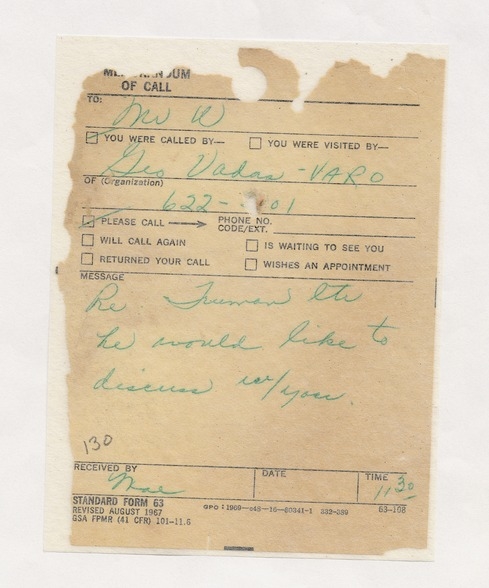 OF CALL
TO:
Mr W
YOU WERE CALLED BY— YOU WERE VISITED BY—
Geo Vadas - VARO
OF (Organization)
622- 01
PLEASE CALL → PHONE NO. CODE/EXT.
WILL CALL AGAIN IS WAITING TO SEE YOU
RETURNED YOUR CALL WISHES AN APPOINTMENT
MESSAGE
Re Truman ltr
he would like to
discuss w/you.
130
RECEIVED BY DATE TIME
Mae 11:30
STANDARD FORM 63
REVISED AUGUST 1967
GSA FPMR (41 CFR) 101-11.6
GPO : 1969—o48—16—80341-1 332-389 63-108